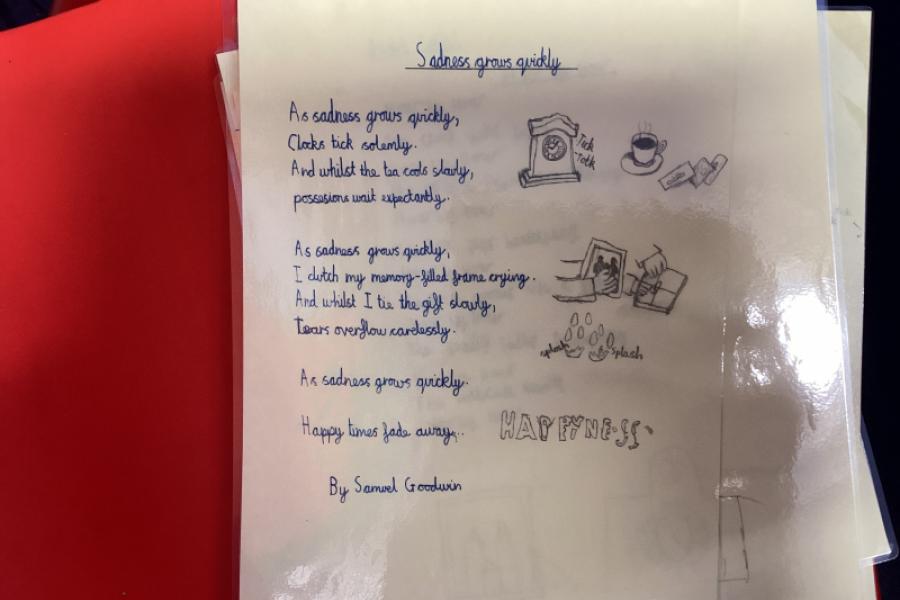 Sadness grows quickly
As sadness grows quickly,
Clocks tick solemly.
And whilst the tea cools slowly,
possesions wait expectantly.
Tick
-Tock
As sadness grows quickly,
I clutch my memory-filled frame crying.
And whilst I tie the gift slowly,
Tears overflow carelessly.
splash
splash
As sadness grows quickly.
Happy times fade away...
HAPPYNESS
By Samuel Goodwin